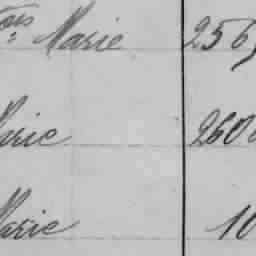 Marie 256
Marie 260
Marie 10